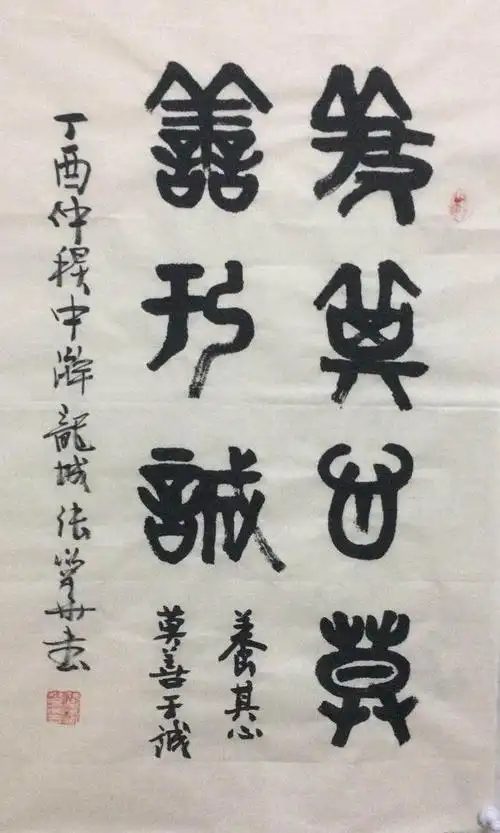 養其心莫
善于誠
養其心
莫善于诚
丁酉仲秋中澣龍城张书